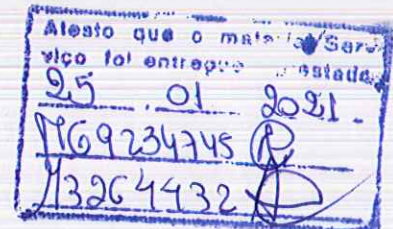 Atesto que o material/Ser-
viço foi entregue estado
25 . 01 2021.
MG9234745
13264432